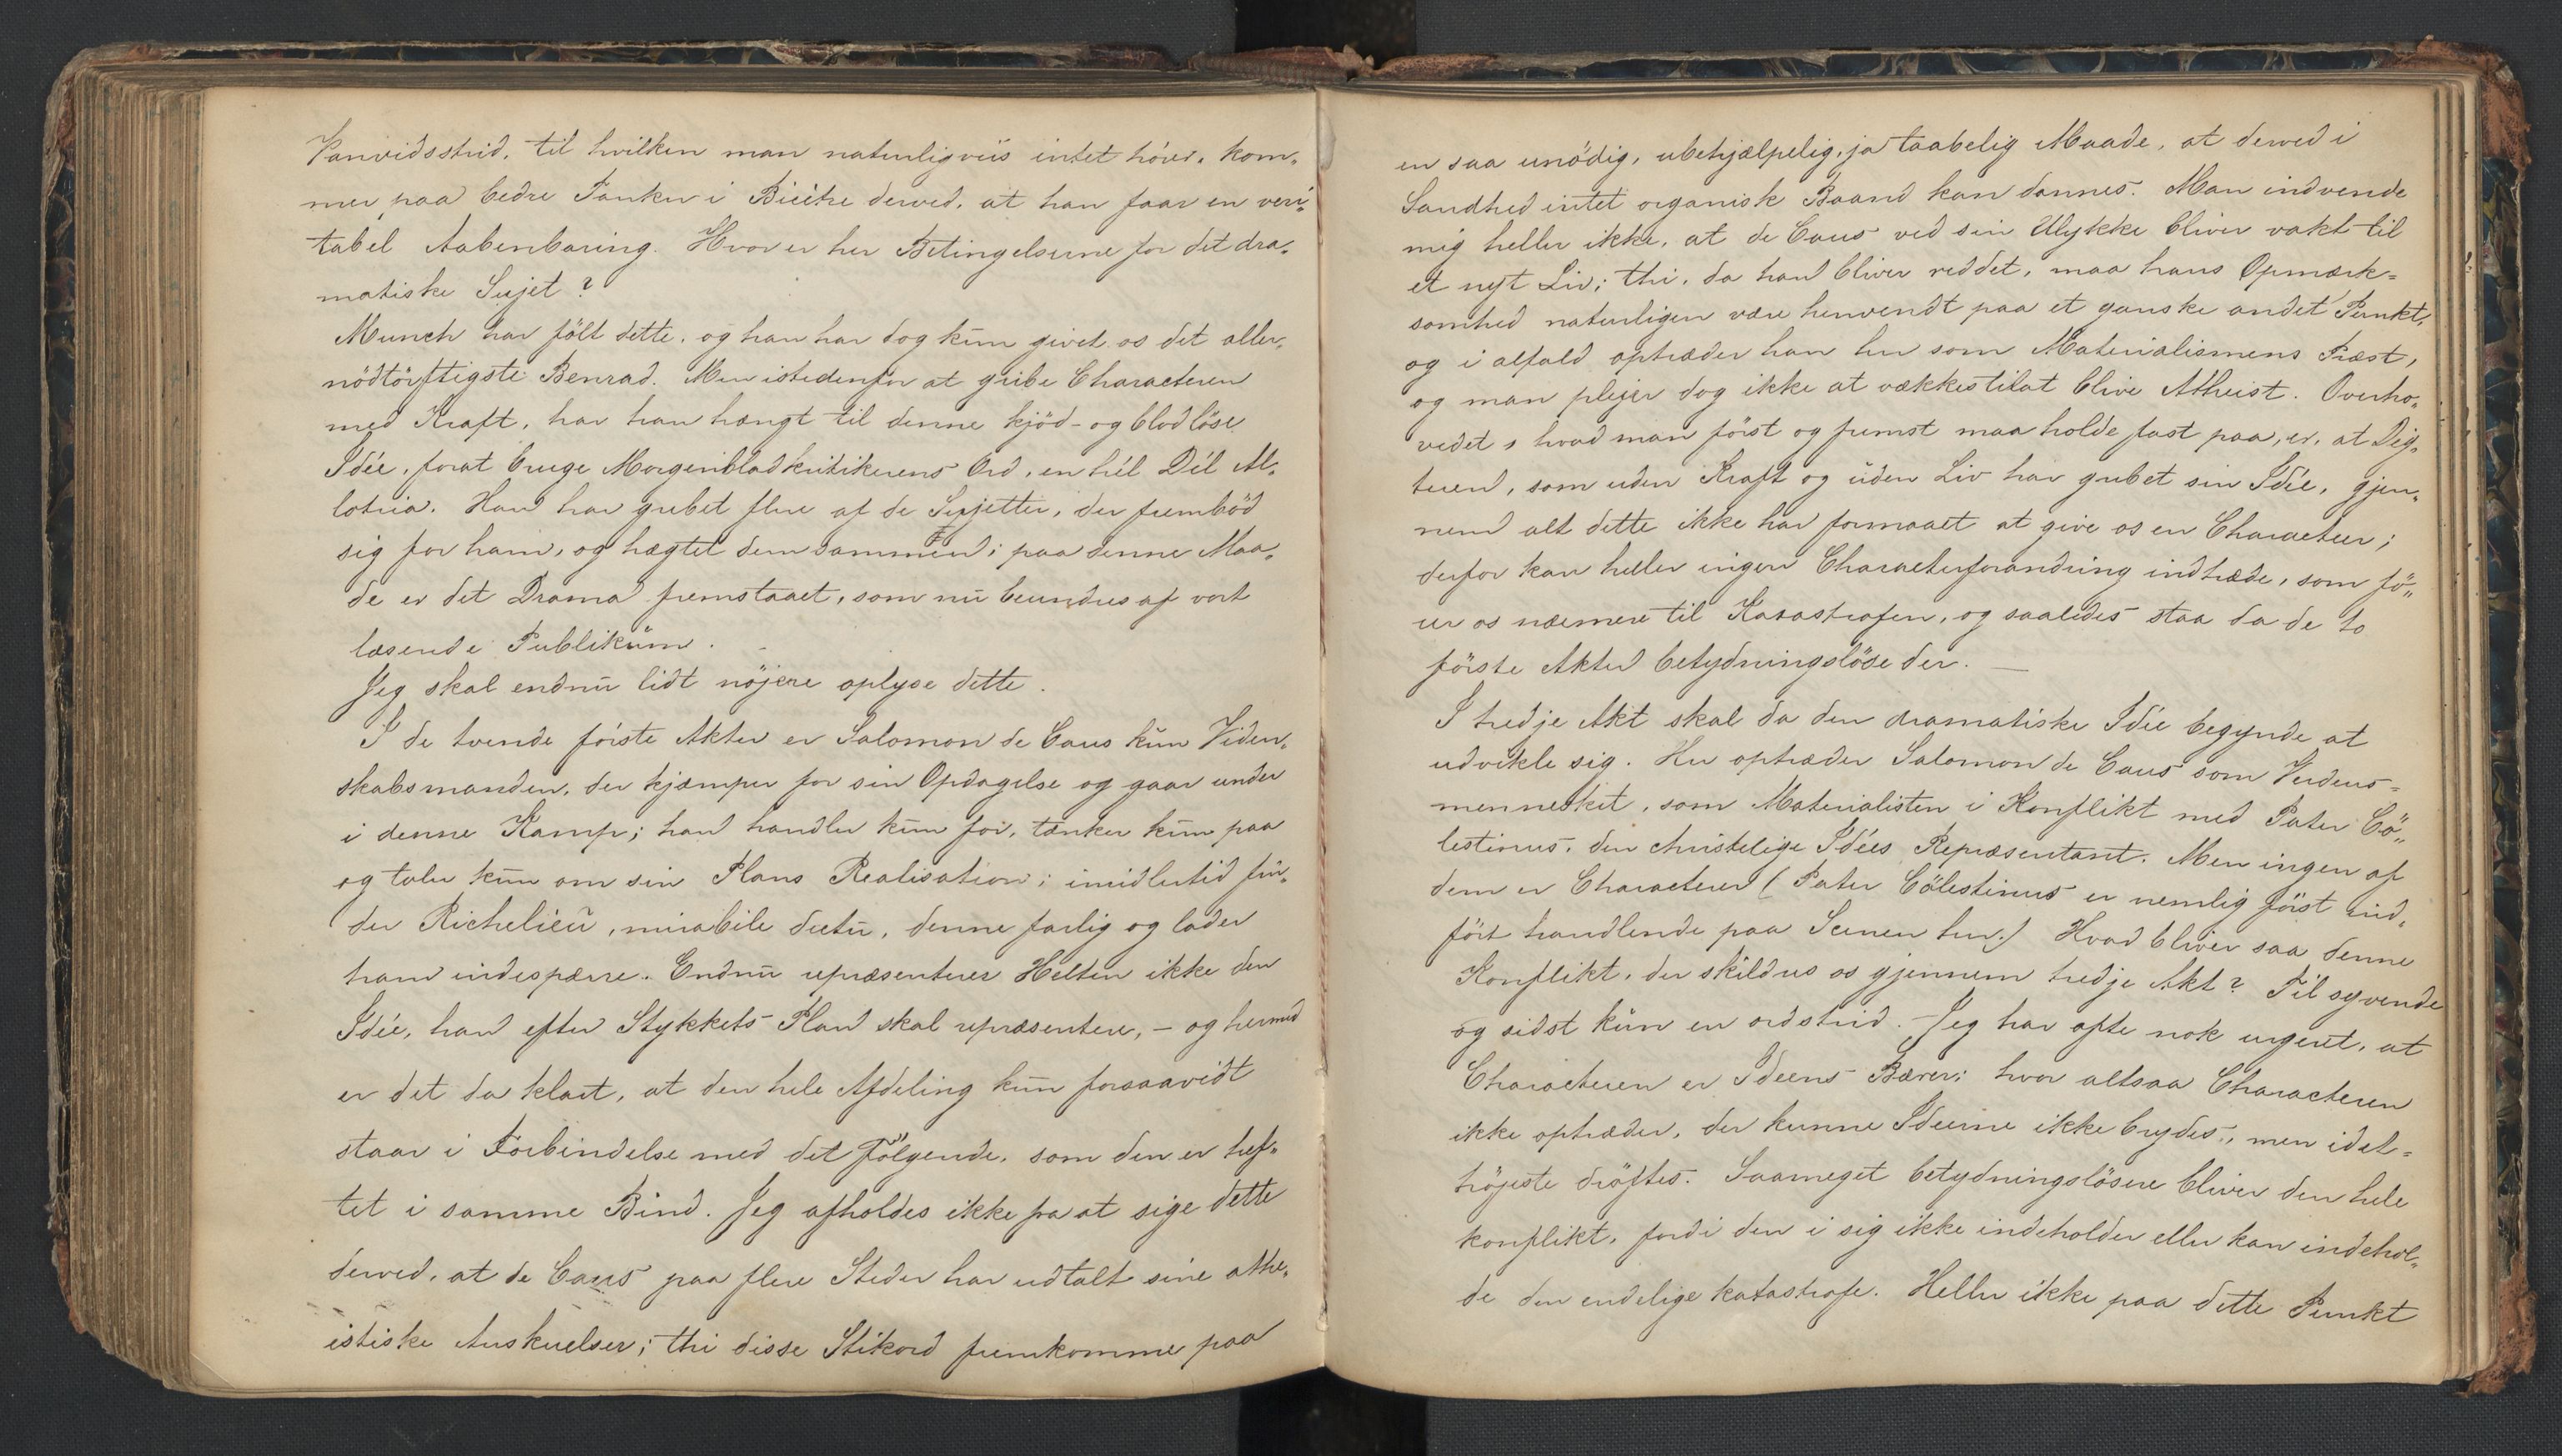 Vanvidsstrid, til hvilken man naturligviis intet hörer, kom-
mer paa bedre Tanker i Bicêtre derved, at han faar en veri-
tabel Aabenbaring. Hvor er her Betingelserne for det dra-
matiske Sujet?
Munch har fölt dette, og han har dog kun givet os det aller-
nödtörftigste Benrad. Men istedenfor at gribe Characteren
med Kraft, har han hængt til denne kjöd- og blodlöse
Idée, forat bruge Morgenbladkritikerens Ord, en hel Del Al-
lotria. Han har grebet flere af de Sujetter, der frembød
sig for ham, og hægtet dem sammen; paa denne Maa-
de er det Drama fremstaaet, som nu beundres af vort
læsende Publikum.
Jeg skal endnu lidt nöjere oplyse dette.
I de tvende förste Akter er Salomon de Caus kun Viden-
skabsmanden, der kjæmper for sin Opdagelse og gaar under
i denne Kamp; han handler kun for, tænker kun paa
og taler kun om sin Plans Realisation; imidlertid fin-
der Richelieu, mirabile dictu, denne farlig og lader
ham indespærre. Endnu repræsenterer Helten ikke den
Idée, han efter Stykkets Plan skal repræsentere, – og hermed
er det da klart, at den hele Afdeling kun forsaavidt
staar i Forbindelse med det Fölgende, som den er hef-
tet i samme Bind. Jeg afholdes ikke fra at sige dette
derved, at de Caus paa flere Steder har udtalt sine athe-
istiske Anskuelser; thi disse Stikord fremkomme paa
en saa unödig, ubehjælpelig, ja taabelig Maade, at derved i
Sandhed intet organisk Baand kan dannes. Man indvende
mig heller ikke, at de Caus ved sin Ulykke bliver vakt til
et nyt Liv; thi, da han bliver reddet, maa hans Opmærk-
somhed naturligen være henvendt paa et ganske andet Punkt,
og i alfald optræder han her som Materialismens Præst,
og man plejer dog ikke at vækkes til at blive Atheist. Overho-
vedet, hvad man först og fremst maa holde fast paa, er, at Dig-
teren, som uden Kraft og uden Liv har grebet sin Idée, gjen-
nem alt dette ikke har formaaet at give os en Character;
derfor kan heller ingen Characterforandring indtræde, som fö-
rer os nærmere til Katastrofen, og saaledes staa da de to
förste Akter betydningslöse der. —
I tredje Akt skal da den dramatiske Idée begynde at
udvikle sig. Her optræder Salomon de Caus som Verdens-
mennesket, som Materialisten i Konflikt med Pater Cö-
lestinus, den christelige Idées Repræsentant. Men ingen af
dem er Characterer (Pater Cölestinus er nemlig först ind-
fört handlende paa Scenen her.) Hvad bliver saa denne
Konflikt, der skildres os gjennem tredje Akt? Til syvende
og sidst kun en ordstrid. – Jeg har ofte nok urgeret, at
Characteren er Ideens Bærer; hvor altsaa Characteren
ikke optræder, der kunne Ideerne ikke brydes, men idet-
höjeste dröftes. Saameget betydningslösere bliver den hele
konflikt, fordi den i sig ikke indeholder eller kan indehol-
de den endelige katastrofe. Heller ikke paa dette Punkt